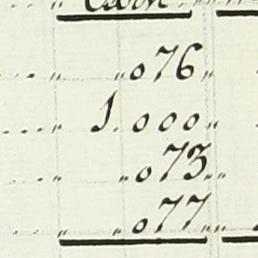 " 076 "
" 1.000 "
" 073 "
" 077 "